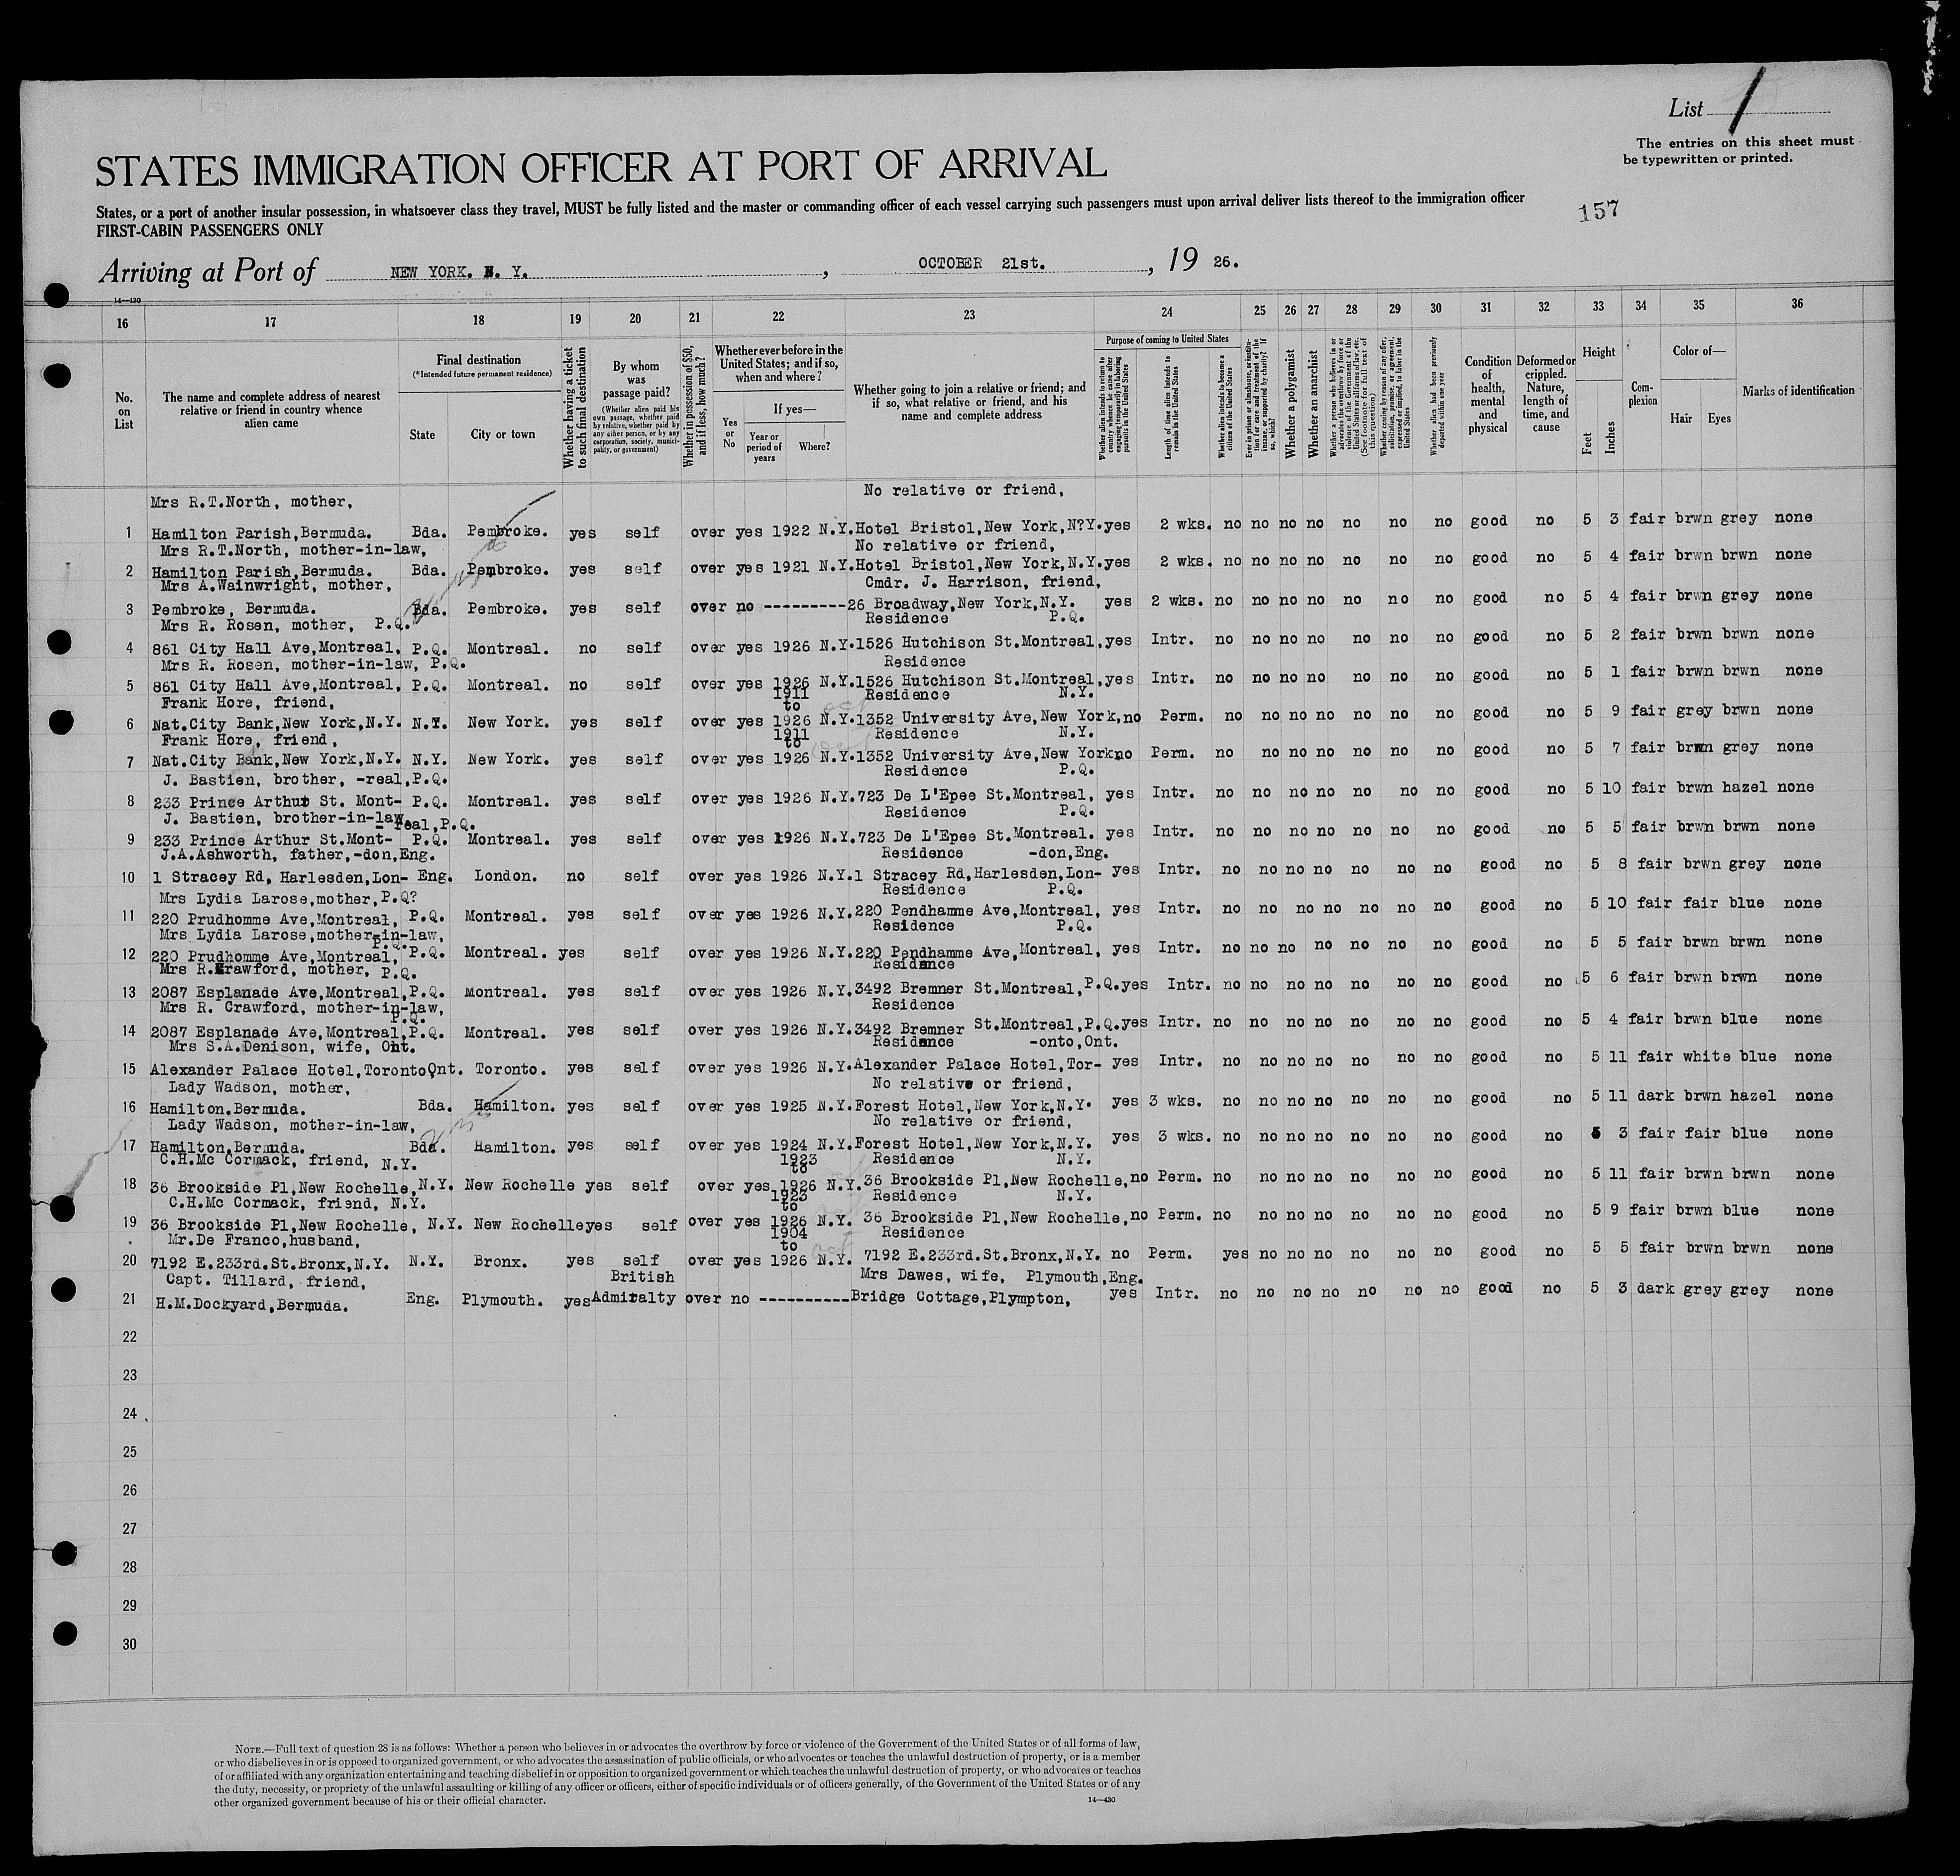 List 1
The entries on this sheet must
be typewritten or printed.
STATES IMMIGRATION OFFICER AT PORT OF ARRIVAL
States, or a port of another insular possession, in whatsoever class they travel, MUST be fully listed and the master or commanding officer of each vessel carrying such passengers must upon arrival deliver lists thereof to the immigration officer
157
FIRST-CABIN PASSENGERS ONLY
Arriving at Port of NEW YORK. N. Y. , OCTOBER 21st. , 19 26.
14—430
16 17 18 19 20 21 22 23 24 25 26 27 28 29 30 31 32 33 34 35 36
No. on List
The name and complete address of nearest relative or friend in country whence alien came
Final destination
(*Intended future permanent residence)
State City or town
Whether having a ticket to such final destination
By whom was passage paid?
(Whether alien paid his own passage, whether paid by relative, whether paid by any other person, or by any corporation, society, municipality, or government)
Whether in possession of $50, and if less, how much?
Whether ever before in the United States; and if so, when and where?
Yes or No
If yes—
Year or period of years Where?
Whether going to join a relative or friend; and if so, what relative or friend, and his name and complete address
Purpose of coming to United States
Whether alien intends to return to country whence he came after engaging temporarily in laboring pursuits in the United States
Length of time alien intends to remain in the United States
Whether alien intends to become a citizen of the United States
Ever in prison or almshouse, or institution for care and treatment of the insane, or supported by charity? If so, which?
Whether a polygamist
Whether an anarchist
Whether a person who believes in or advocates the overthrow by force or violence of the Government of the United States or all forms of law, etc. (See footnote for full text of this question)
Whether coming by reason of any offer, solicitation, promise, or agreement, expressed or implied, to labor in the United States
Whether alien had been previously deported within one year
Condition of health, mental and physical
Deformed or crippled. Nature, length of time, and cause
Height
Feet Inches
Complexion
Color of—
Hair Eyes
Marks of identification
Mrs R.T.North, mother, No relative or friend,
1 Hamilton Parish,Bermuda. Bda. Pembroke. yes self over yes 1922 N.Y. Hotel Bristol,New York,N?Y. yes 2 wks. no no no no no no no good no 5 3 fair brwn grey none
Mrs R.T.North, mother-in-law, No relative or friend,
2 Hamilton Parish,Bermuda. Bda. Pembroke. yes self over yes 1921 N.Y. Hotel Bristol,New York,N.Y. yes 2 wks. no no no no no no no good no 5 4 fair brwn brwn none
Mrs A.Wainwright, mother, Cmdr. J. Harrison, friend,
3 Pembroke, Bermuda. Bda. Pembroke. yes self over no --------- 26 Broadway,New York,N.Y. yes 2 wks. no no no no no no no good no 5 4 fair brwn grey none
Mrs R. Rosen, mother, P.Q. Residence P.Q.
4 861 City Hall Ave,Montreal, P.Q. Montreal. no self over yes 1926 N.Y. 1526 Hutchison St.Montreal, yes Intr. no no no no no no no good no 5 2 fair brwn brwn none
Mrs R. Rosen, mother-in-law, P.Q. Residence
5 861 City Hall Ave,Montreal, P.Q. Montreal. no self over yes 1926 N.Y. 1526 Hutchison St.Montreal, yes Intr. no no no no no no no good no 5 1 fair brwn brwn none
Frank Hore, friend, 1911 to Residence N.Y.
6 Nat.City Bank,New York,N.Y. N.Y. New York. yes self over yes 1926 N.Y. 1352 University Ave,New York, no Perm. no no no no no no no good no 5 9 fair grey brwn none
Frank Hore, friend, 1911 to Residence N.Y.
7 Nat.City Bank,New York,N.Y. N.Y. New York. yes self over yes 1926 N.Y. 1352 University Ave,New York, no Perm. no no no no no no no good no 5 7 fair brwn grey none
J. Bastien, brother, -real,P.Q. Residence P.Q.
8 233 Prince Arthur St. Mont- P.Q. Montreal. yes self over yes 1926 N.Y. 723 De L'Epee St.Montreal, yes Intr. no no no no no no no good no 5 10 fair brwn hazel none
J. Bastien, brother-in-law, -real,P.Q. Residence P.Q.
9 233 Prince Arthur St.Mont- P.Q. Montreal. yes self over yes 1926 N.Y. 723 De L'Epee St.Montreal. yes Intr. no no no no no no no good no 5 5 fair brwn brwn none
J.A.Ashworth, father,-don,Eng. Residence -don,Eng.
10 1 Stracey Rd, Harlesden,Lon- Eng. London. no self over yes 1926 N.Y. 1 Stracey Rd,Harlesden,Lon- yes Intr. no no no no no no no good no 5 8 fair brwn grey none
Mrs Lydia Larose,mother,P.Q? Residence P.Q.
11 220 Prudhomme Ave,Montreal, P.Q. Montreal. yes self over yes 1926 N.Y. 220 Pendhamme Ave,Montreal, yes Intr. no no no no no no no good no 5 10 fair fair blue none
Mrs Lydia Larose,mother-in-law, P.Q. Residence P.Q.
12 220 Prudhomme Ave,Montreal, P.Q. Montreal. yes self over yes 1926 N.Y. 220 Pendhamme Ave,Montreal, yes Intr. no no no no no no no good no 5 5 fair brwn brwn none
Mrs R.Crawford, mother, P.Q. Residence
13 2087 Esplanade Ave,Montreal,P.Q. Montreal. yes self over yes 1926 N.Y. 3492 Bremner St.Montreal,P.Q. yes Intr. no no no no no no no good no 5 6 fair brwn brwn none
Mrs R. Crawford, mother-in-law, P.Q. Residence
14 2087 Esplanade Ave,Montreal,P.Q. Montreal. yes self over yes 1926 N.Y. 3492 Bremner St.Montreal,P.Q. yes Intr. no no no no no no no good no 5 4 fair brwn blue none
Mrs S.A.Denison, wife, Ont. Residence -onto,Ont.
15 Alexander Palace Hotel,Toronto Ont. Toronto. yes self over yes 1926 N.Y. Alexander Palace Hotel,Tor- yes Intr. no no no no no no no good no 5 11 fair white blue none
Lady Wadson, mother, No relative or friend,
16 Hamilton.Bermuda. Bda. Hamilton. yes self over yes 1925 N.Y. Forest Hotel,New York,N.Y. yes 3 wks. no no no no no no no good no 5 11 dark brwn hazel none
Lady Wadson, mother-in-law, No relative or friend,
17 Hamilton,Bermuda. Bda. Hamilton. yes self over yes 1924 N.Y. Forest Hotel,New York,N.Y. yes 3 wks. no no no no no no no good no 5 3 fair fair blue none
C.H.Mc Cormack, friend, N.Y. 1923 to Residence N.Y.
18 36 Brookside Pl,New Rochelle, N.Y. New Rochelle yes self over yes 1926 N.Y. 36 Brookside Pl,New Rochelle, no Perm. no no no no no no no good no 5 11 fair brwn brwn none
C.H.Mc Cormack, friend, N.Y. 1923 to Residence N.Y.
19 36 Brookside Pl,New Rochelle, N.Y. New Rochelle yes self over yes 1926 N.Y. 36 Brookside Pl,New Rochelle, no Perm. no no no no no no no good no 5 9 fair brwn blue none
Mr.De Franco,husband, 1904 to Residence
20 7192 E.233rd.St.Bronx,N.Y. N.Y. Bronx. yes self over yes 1926 N.Y. 7192 E.233rd.St.Bronx,N.Y. no Perm. yes no no no no no no good no 5 5 fair brwn brwn none
Capt. Tillard, friend, British Mrs Dawes, wife, Plymouth,Eng.
21 H.M.Dockyard,Bermuda. Eng. Plymouth. yes Admiralty over no ---------- Bridge Cottage,Plympton, yes Intr. no no no no no no no good no 5 3 dark grey grey none
22
23
24
25
26
27
28
29
30
NOTE.—Full text of question 28 is as follows: Whether a person who believes in or advocates the overthrow by force or violence of the Government of the United States or of all forms of law,
or who disbelieves in or is opposed to organized government, or who advocates the assassination of public officials, or who advocates or teaches the unlawful destruction of property, or is a member
of or affiliated with any organization entertaining and teaching disbelief in or opposition to organized government or which teaches the unlawful destruction of property, or who advocates or teaches
the duty, necessity, or propriety of the unlawful assaulting or killing of any officer or officers, either of specific individuals or of officers generally, of the Government of the United States or of any
other organized government because of his or their official character.
14—430